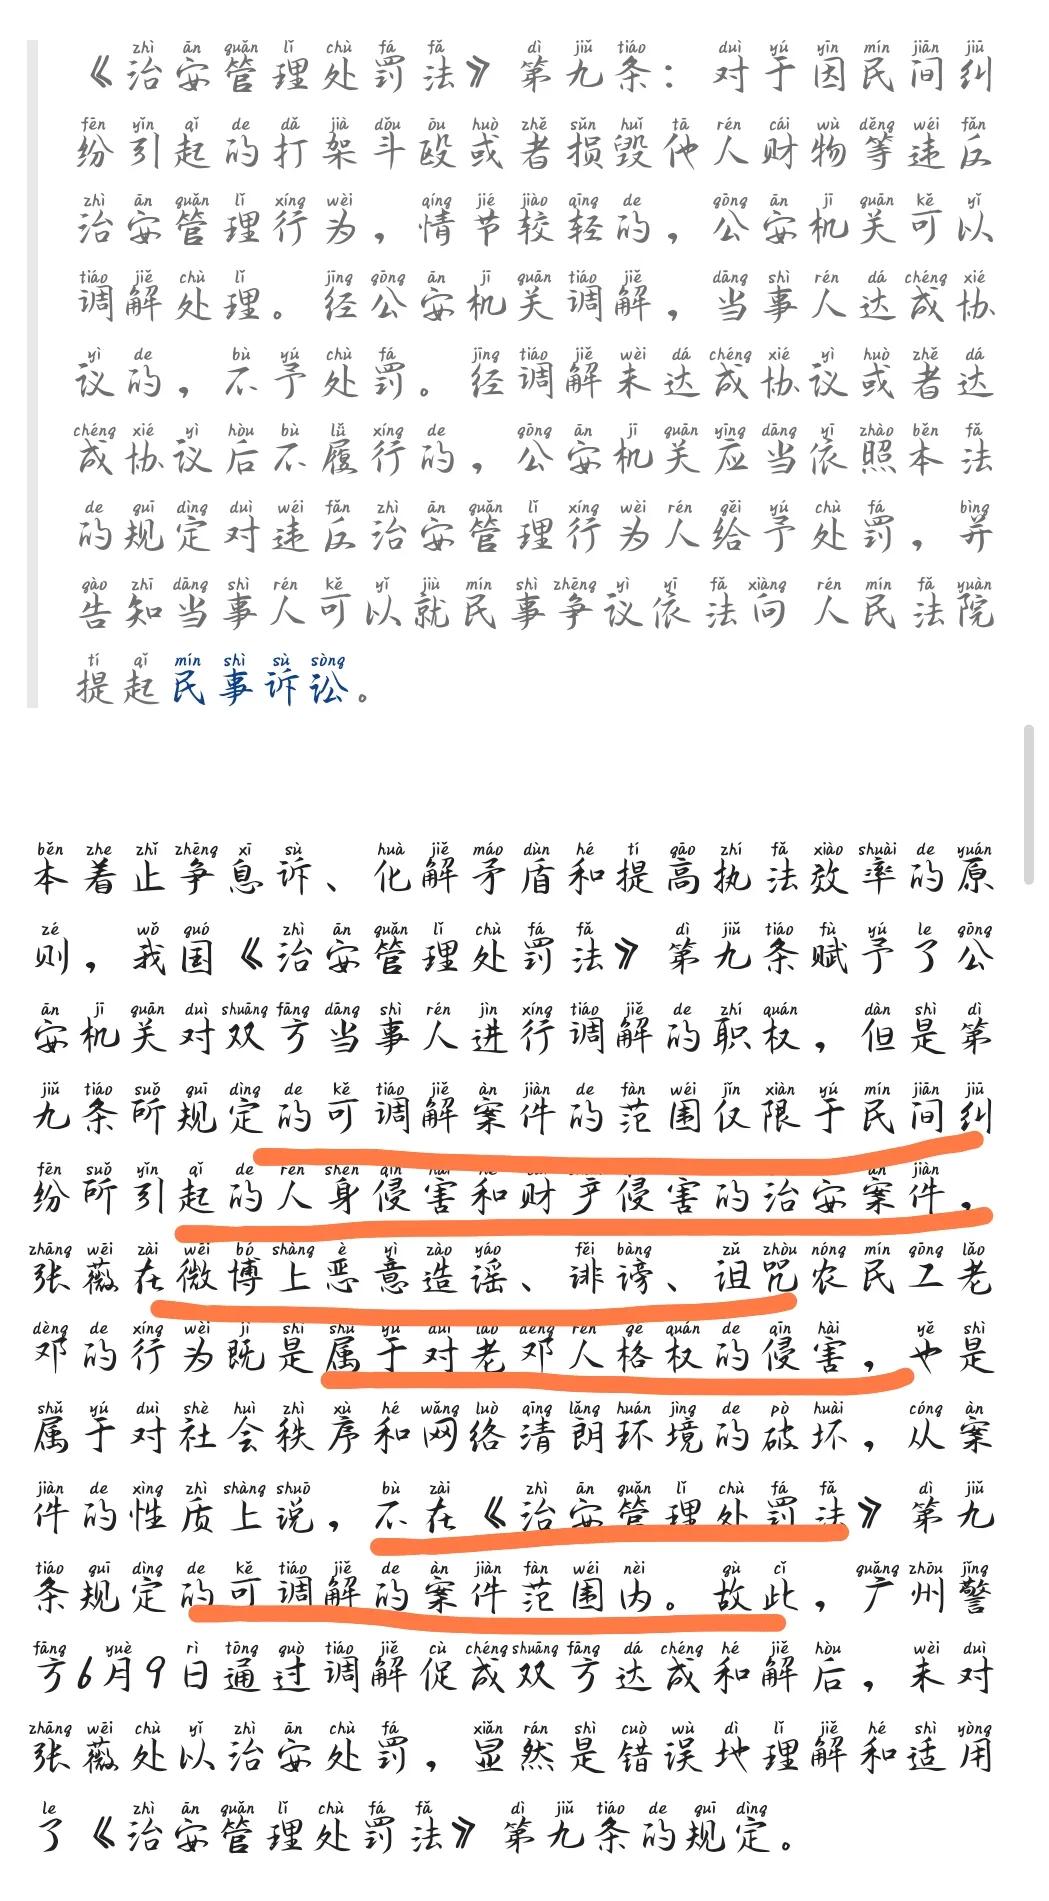 《治安管理处罚法》第九条：对于因民间纠
纷引起的打架斗殴或者损毁他人财物等违反
治安管理行为，情节较轻的，公安机关可以
调解处理。经公安机关调解，当事人达成协
议的，不予处罚。经调解未达成协议或者达
成协议后不履行的，公安机关应当依照本法
的规定对违反治安管理行为人给予处罚，并
告知当事人可以就民事争议依法向人民法院
提起民事诉讼。
本着止争息诉、化解矛盾和提高执法效率的原
则，我国《治安管理处罚法》第九条赋予了公
安机关对双方当事人进行调解的职权，但是第
九条所规定的可调解案件的范围仅限于民间纠
纷所引起的人身侵害和财产侵害的治安案件，
张薇在微博上恶意造谣、诽谤、诅咒农民工老
邓的行为既是属于对老邓人格权的侵害，也是
属于对社会秩序和网络清朗环境的破坏，从案
件的性质上说，不在《治安管理处罚法》第九
条规定的可调解的案件范围内。故此，广州警
方6月9日通过调解促成双方达成和解后，未对
张薇处以治安处罚，显然是错误地理解和适用
了《治安管理处罚法》第九条的规定。